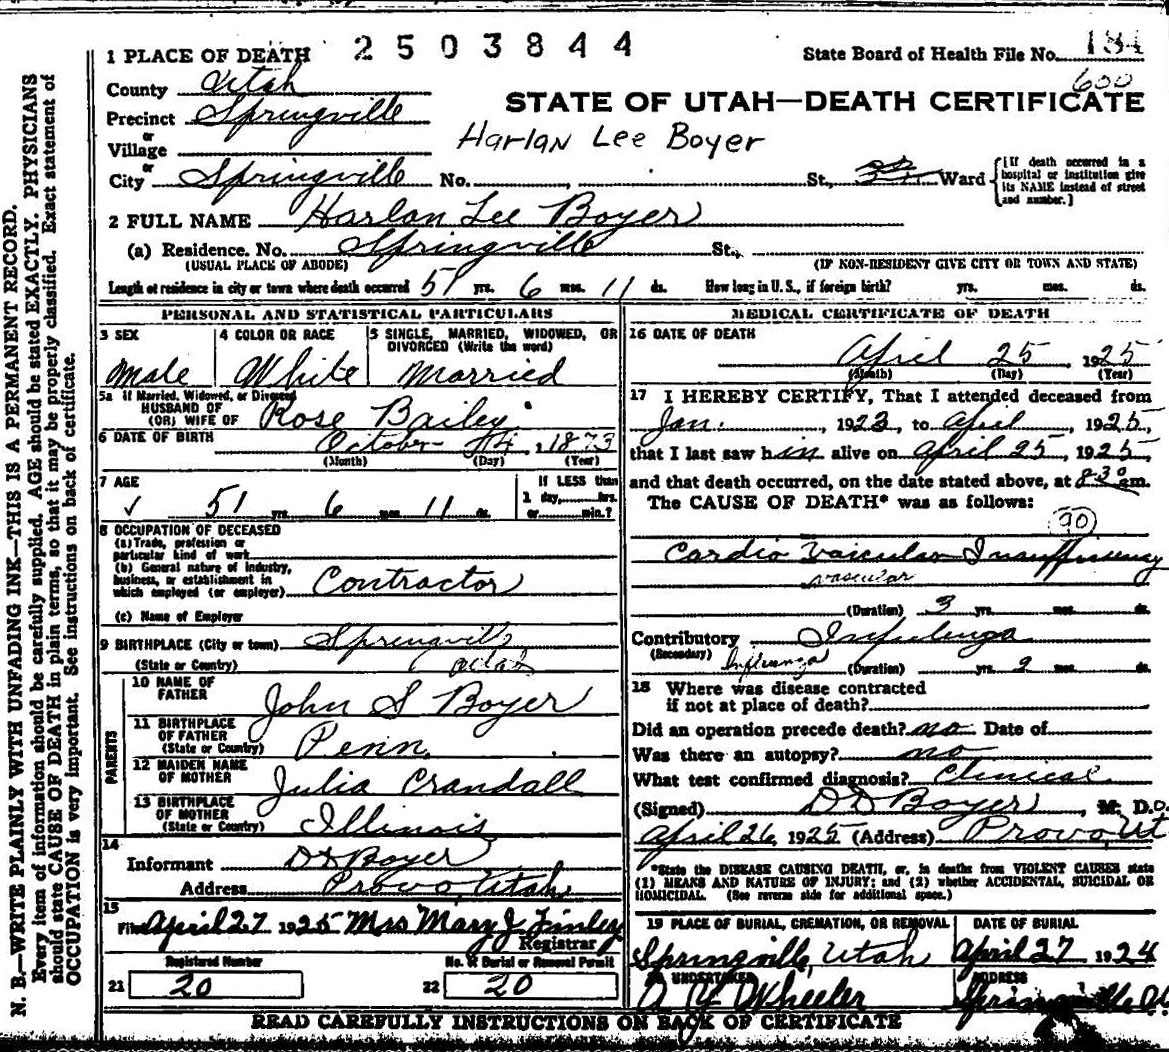 1 PLACE OF DEATH 2503844 State Board of Health File No. 184
County Utah 600
Precinct Springville STATE OF UTAH—DEATH CERTIFICATE
or
Village Harlan Lee Boyer
or
City Springville No. , St., 3rd Ward {[If death occurred in a hospital or institution give its NAME instead of street and number.]
2 FULL NAME Harlan Lee Boyer
(a) Residence. No. Springville St.,
(USUAL PLACE OF ABODE) (IF NON-RESIDENT GIVE CITY OR TOWN AND STATE)
Length of residence in city or town where death occurred 51 yrs. 6 mos. 11 ds. How long in U. S., if foreign birth? yrs. mos. ds.
PERSONAL AND STATISTICAL PARTICULARS
3 SEX 4 COLOR OR RACE 5 SINGLE, MARRIED, WIDOWED, OR DIVORCED (Write the word)
Male White Married
5a If Married, Widowed, or Divorced
HUSBAND OF
(OR) WIFE OF Rose Bailey
6 DATE OF BIRTH October 14, 1873
(Month) (Day) (Year)
7 AGE If LESS than
51 yrs. 6 mos. 11 ds. 1 day, hrs.
or min.?
8 OCCUPATION OF DECEASED
(a) Trade, profession or
particular kind of work
(b) General nature of industry,
business, or establishment in
which employed (or employer) Contractor
(c) Name of Employer
9 BIRTHPLACE (City or town) Springville
(State or Country) Utah
PARENTS
10 NAME OF
FATHER John S Boyer
11 BIRTHPLACE
OF FATHER
(State or Country) Penn.
12 MAIDEN NAME
OF MOTHER Julia Crandall
13 BIRTHPLACE
OF MOTHER
(State or Country) Illinois
14
Informant DD Boyer
Address Provo, Utah
15
Filed April 27 1925 Mrs Mary J Finley
Registrar
Registered Number No. of Burial or Removal Permit
21 20 22 20
MEDICAL CERTIFICATE OF DEATH
16 DATE OF DEATH
April 25, 1925
(Month) (Day) (Year)
17 I HEREBY CERTIFY, That I attended deceased from
Jan. , 1923, to April , 1925,
that I last saw him alive on April 25, 1925,
and that death occurred, on the date stated above, at 8 30 am.
The CAUSE OF DEATH* was as follows:
90
Cardio Vascular Insufficiency
vascular
(Duration) 3 yrs. mos. ds.
Contributory Influenza
(Secondary) Influenza (Duration) yrs. 2 mos. ds.
18 Where was disease contracted
if not at place of death?
Did an operation precede death? no Date of
Was there an autopsy? no
What test confirmed diagnosis? Clinical
(Signed) DD Boyer , M. D.O.
April 26, 1925 (Address) Provo, Ut
*State the DISEASE CAUSING DEATH, or, in deaths from VIOLENT CAUSES state
(1) MEANS AND NATURE OF INJURY; and (2) whether ACCIDENTAL, SUICIDAL OR
HOMICIDAL. (See reverse side for additional space.)
19 PLACE OF BURIAL, CREMATION, OR REMOVAL DATE OF BURIAL
Springville, Utah April 27 1924
20 UNDERTAKER ADDRESS
A Y Wheeler Springville
READ CAREFULLY INSTRUCTIONS ON BACK OF CERTIFICATE
N. B.—WRITE PLAINLY WITH UNFADING INK—THIS IS A PERMANENT RECORD.
Every item of information should be carefully supplied. AGE should be stated EXACTLY. PHYSICIANS
should state CAUSE OF DEATH in plain terms, so that it may be properly classified. Exact statement of
OCCUPATION is very important. See instructions on back of certificate.